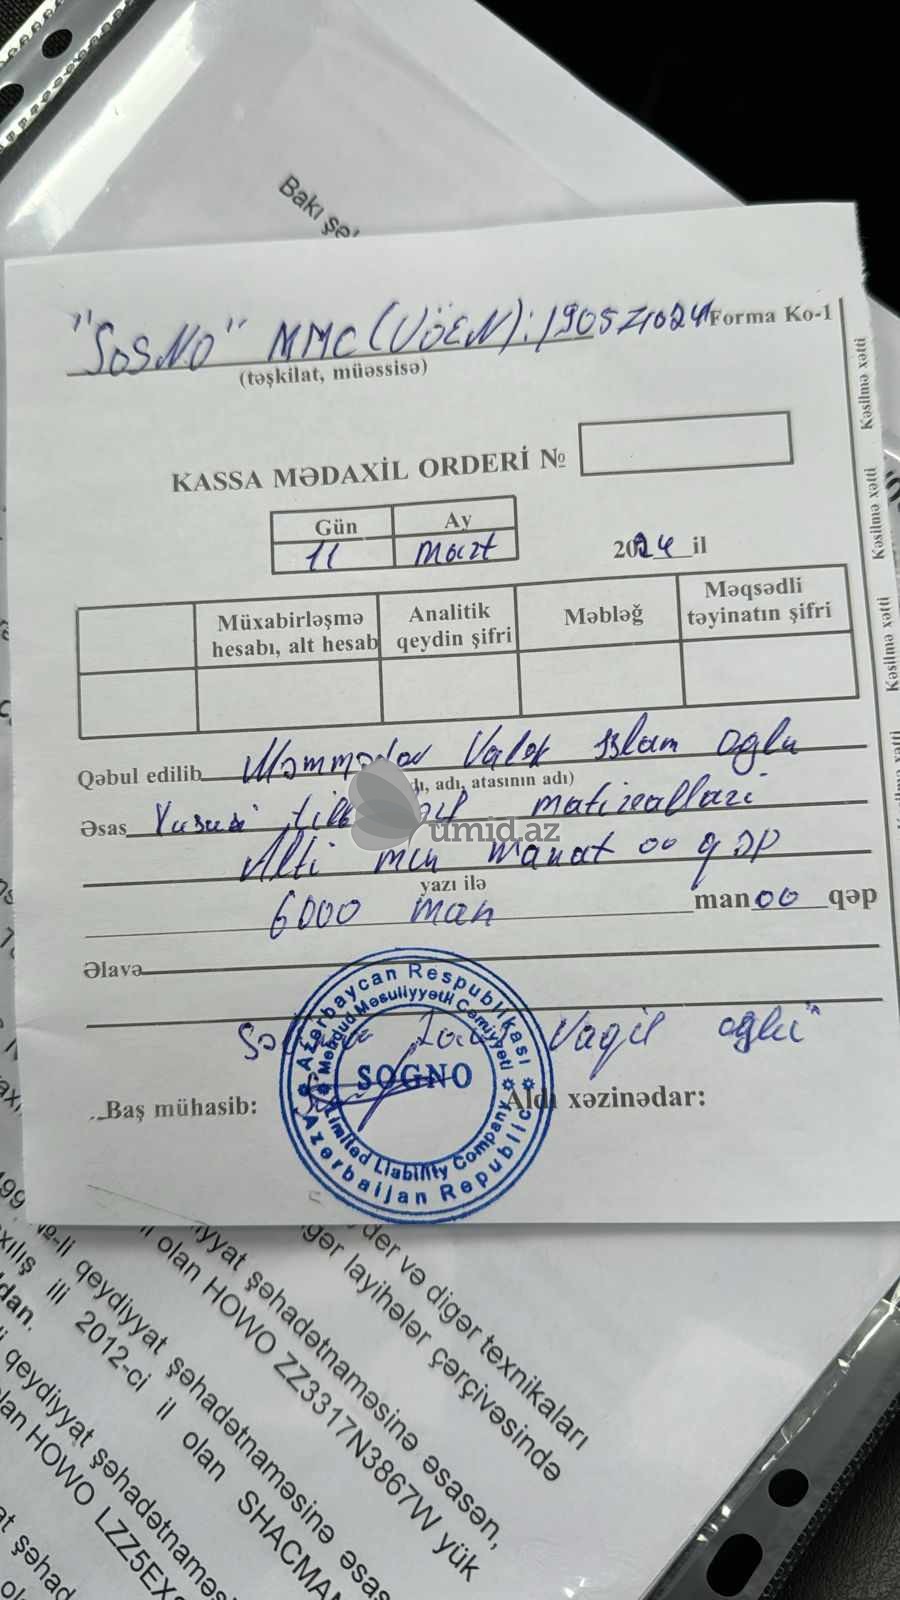 Bakı şə
"SOSNO" MMC (VÖEN): Forma Ko-1
(təşkilat, müəssisə)
KASSA MƏDAXİL ORDERİ №
Gün Ay
11 Mart 2024 il
Müxabirləşmə hesabı, alt hesab
Analitik qeydin şifri
Məbləğ
Məqsədli təyinatın şifri
Qəbul edilib Məmmədov İslam oglu
ı, adı, atasının adı)
Əsas
umid.az
Alti min manat 00 qəp
yazı ilə
6000 man man 00 qəp
Əlavə
Vaqif oglu"
Baş mühasib: Aldı xəzinədar:
Azərbaycan Respublikası
Məhdud Məsuliyyətli Cəmiyyəti
SOGNO
Limited Liability Company
Azerbaijan Republic
Kəsilmə xətti
Kəsilmə xətti
Kəsilmə xətti
der və digər texnikaları
gər layihələr çərçivəsində
yyət şəhadətnaməsinə əsasən,
olan HOWO ZZ3317N3867W yük
№-li qeydiyyat şəhadətnaməsinə əsas
xılış ili 2012-ci il olan SHACMAN
dan.
qeydiyyat şəhadətnaməs
lan HOWO LZZ5EX
at şəhad